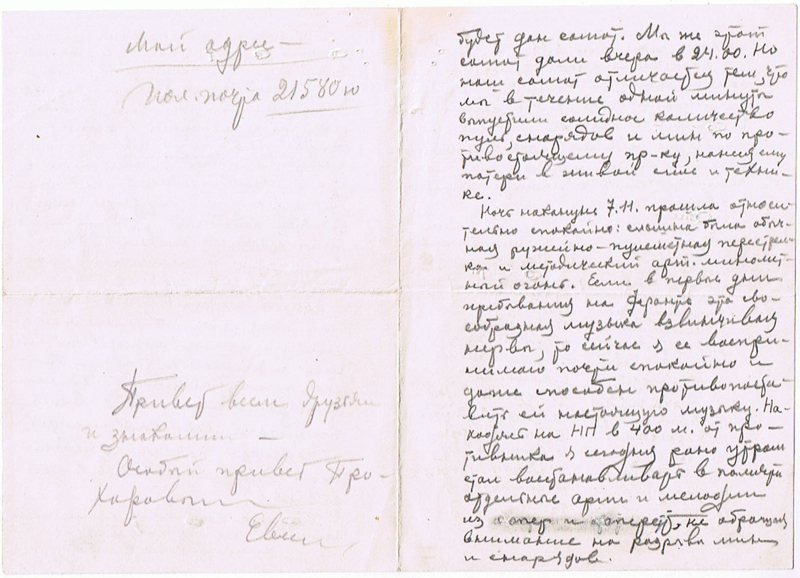 Мой адрес –
Пол. почта 21580 ю
Привет всем друзьям
и знакомым –
Особый привет Про-
харовым
будет дан салют. Мы же этот
салют дали вчера в 24.00. Но
наш салют отличается тем, что
мы в течение одной минуты
выпустили солидное количество
пуль, снарядов и мин по про-
тивостоящему пр-ку, нанеся ему
потери в живой силе и техни-
ке.
Ночь накануне 7.11. прошла относи-
тельно спокойно: слышна была обыч-
ная ружейно-пулеметная перестрел-
ка и методический арт. миномет-
ный огонь. Если в первые дни
пребывания на фронте эта сво-
образная музыка взвинчивала
нервы, то сейчас я ее воспри-
нимаю почти спокойно и
даже способен противопоста-
вить ей настоящую музыку. На-
ходясь на НП в 400 м. от про-
тивника я сегодня рано утром
стал восстанавливать в памяти
отдельные арии и мелодии
из опер и оперетт, не обращая
внимание на разрывы мин
и снарядов.